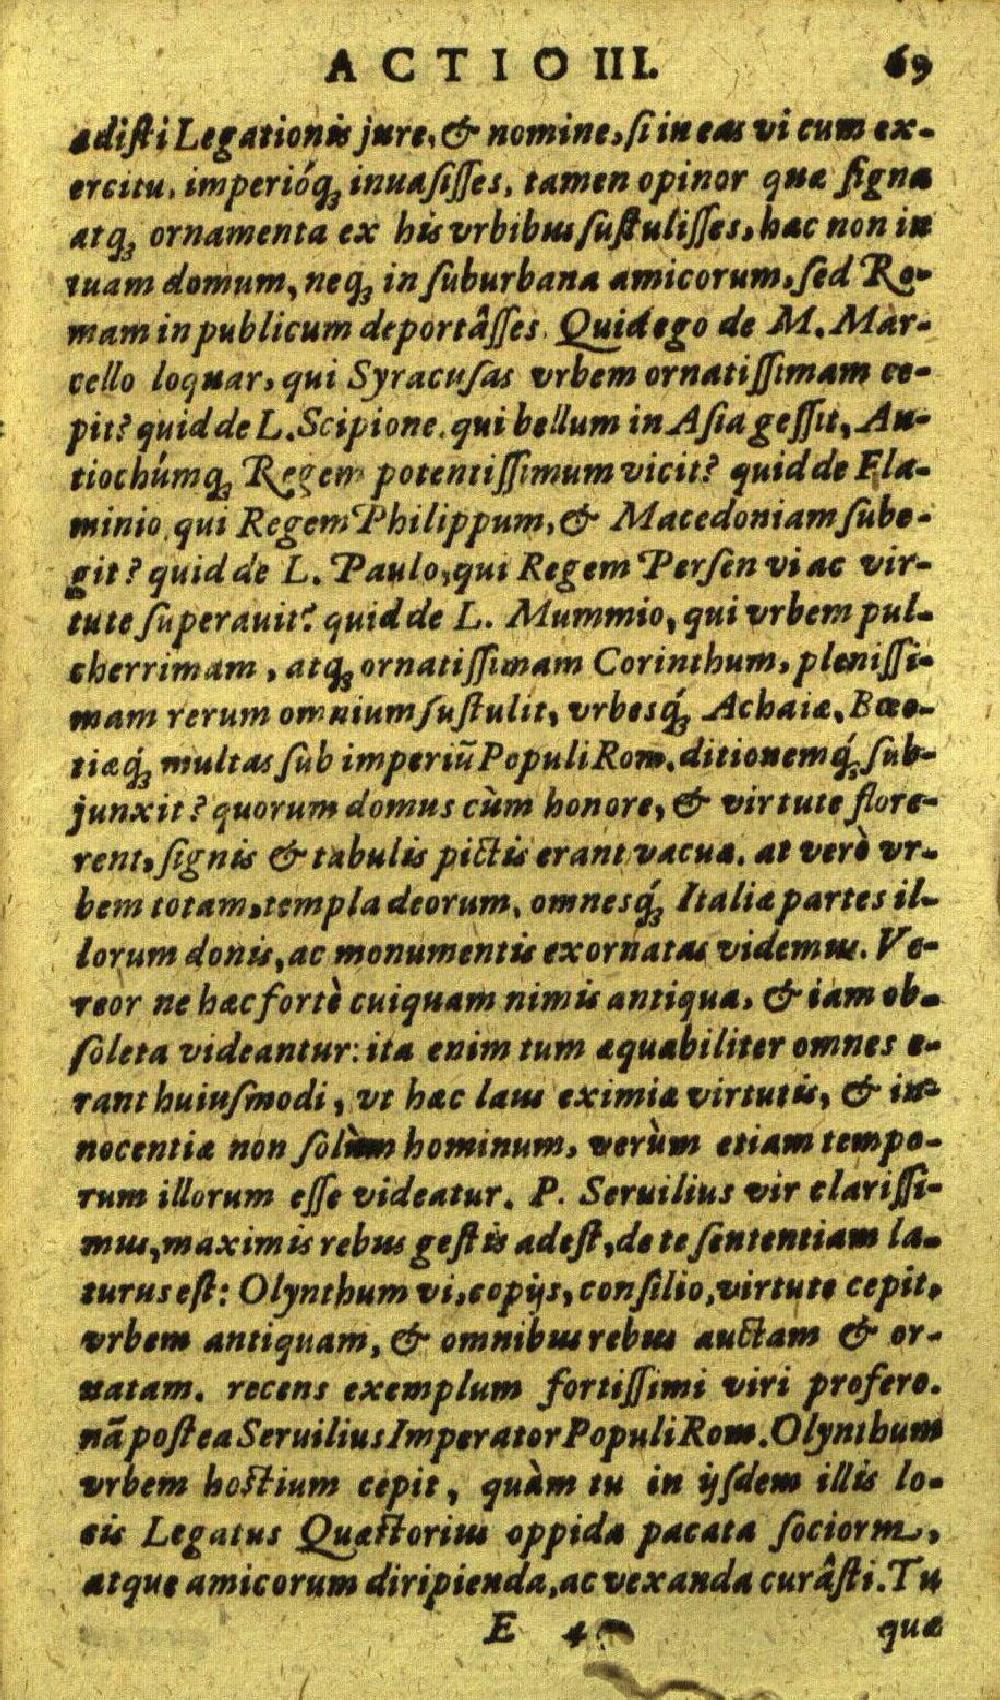 ACTIO III. 69
adisti Legationis jure, & nomine, si in eas vi cum ex-
ercitu, imperióq; inuasisses, tamen opinor quæ signa
atq; ornamenta ex his vrbibus sustulisses, hæc non in
tuam domum, neq; in suburbana amicorum, sed Ro-
mam in publicum deportâsses. Quid ego de M. Mar-
cello loquar, qui Syracusas vrbem ornatissimam ce-
pit? quid de L. Scipione, qui bellum in Asia gessit, An-
tiochúmq; Regem potentissimum vicit? quid de Fla-
minio, qui Regem Philippum, & Macedoniam sube-
git? quid de L. Paulo, qui Regem Persen vi ac vir-
tute superauit? quid de L. Mummio, qui vrbem pul-
cherrimam, atq; ornatissimam Corinthum, plenissi-
mam rerum omnium sustulit, vrbesq́; Achaiæ, Bœo-
tiæq́; multas sub imperiū Populi Rom. ditionemq́; sub-
junxit? quorum domus cùm honore, & virtute flore-
rent, signis & tabulis pictis erant vacuæ. at verò vr-
bem totam, templa deorum, omnesq́; Italiæ partes il-
lorum donis, ac monumentis exornatas videmus. Ve-
reor ne hæc fortè cuiquam nimis antiqua, & iam ob-
soleta videantur: ita enim tum æquabiliter omnes e-
rant huiusmodi, vt hæc laus eximiæ virtutis, & in-
nocentiæ non solùm hominum, verùm etiam tempo-
rum illorum esse videatur. P. Seruilius vir clarissi-
mus, maximis rebus gestis adest, de te sententiam la-
turus est: Olynthum vi, copijs, consilio, virtute cepit,
vrbem antiquam, & omnibus rebus auctam & or-
natam. recens exemplum fortissimi viri profero.
nā postea Seruilius Imperator Populi Rom. Olynthum
vrbem hostium cepit, quàm tu in ijsdem illis lo-
cis Legatus Quæstorius oppida pacata sociorm,
atque amicorum diripienda, ac vexanda curâsti. Tu
E 4 quæ